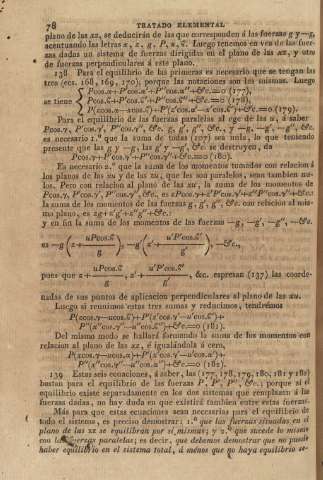 78 TRATADO ELEMENTAL
plano de las xz, se deducirán de las que corresponden á las fuerzas g y —g,
acentuando las letras z, x, g, P, u, ϐ. Luego tenemos en vez de las fuer-
zas dadas un sistema de fuerzas dirigidas en el plano de las xz, y otro
de fuerzas perpendiculares á este plano.
138 Para el equilibrio de las primeras es necesario que se tengan las
tres (ecs. 168, 169, 170), porque las notaciones son las mismas. Luego
Pcos.α+P'cos.α'+P''cos.α''+&c.=0 (177),
se tiene Pcos.ϐ+P'cos.ϐ'+P''cos.ϐ''+&c.=0 (178),
P(xcos.ϐ—zcos.α)+P'(x'cos.ϐ'—z'cos.α')+&c.=0 (179).
Para el equilibrio de las fuerzas paralelas al ege de las u, á saber
Pcos.γ, P'cos.γ', P''cos.γ'', &c. g, g', g'', &c., y —g, —g', —g'', &c.
es necesario 1.º que la suma de todas (107) sea nula, lo que teniendo
presente que las g y —g, las g' y —g', &c. se destruyen, da
Pcos.γ+P'cos.γ'+P''cos.γ''+&c.=0 (180).
Es necesario 2.º que la suma de los momentos tomados con relacion á
los planos de las xu y de las zu, que les son paralelos, sean tambien nu-
los. Pero con relacion al plano de las xu, la suma de los momentos de
Pcos.γ, P'cos.γ', P''cos.γ'', &c. es zPcos.γ+z'P'cos.γ'+z''P''cos.γ''+&c.:
la suma de los momentos de las fuerzas g, g', g'', &c. con relacion al mis-
mo plano, es zg+z'g'+z''g''+&c.:
y en fin la suma de los momentos de las fuerzas —g, —g', —g'', —&c.
es —g(z+ uPcos.ϐ/g) —g'(z'+ u'P'cos.ϐ'/g'), —&c.,
pues que z+ uPcos.ϐ/g, z'+ u'P'cos.ϐ'/g', &c. espresan (137) las coorde-
nadas de sus puntos de aplicacion perpendiculares al plano de las xu.
Luego si reunimos estas tres sumas y reducimos, tendrémos
P(zcos.γ—ucos.ϐ)+P'(z'cos.γ'—u'cos.ϐ')+
P''(z''cos.γ''—u''cos.ϐ'')+&c.=0 (181).
Del mismo modo se hallará formando la suma de los momentos con
relacion al plano de las zx, é igualándola á cero,
P(xcos.γ—ucos.α)+P'(x'cos.γ'—u'cos.α')+
P''(x''cos.γ''—u''cos.α'')+&c.=0 (182).
139 Estas seis ecuaciones, á saber, las (177, 178, 179, 180, 181 y 182)
bastan para el equilibrio de las fuerzas P, P', P'', &c.; porque si el
equilibrio existe separadamente en los dos sistemas que remplazan á las
fuerzas dadas, no hay duda en que existirá tambien entre estas fuerzas.
Más para que estas ecuaciones sean necesarias para el equilibrio de
todo el sistema, es preciso demostrar: 1.º que las fuerzas situadas en el
plano de las xz se equilibran por sí mismas; y 2.º que sucede lo mismo
con las fuerzas paralelas; es decir, que debemos demostrar que no puede
haber equilibrio en el sistema total, á ménos que no haya equilibrio se-